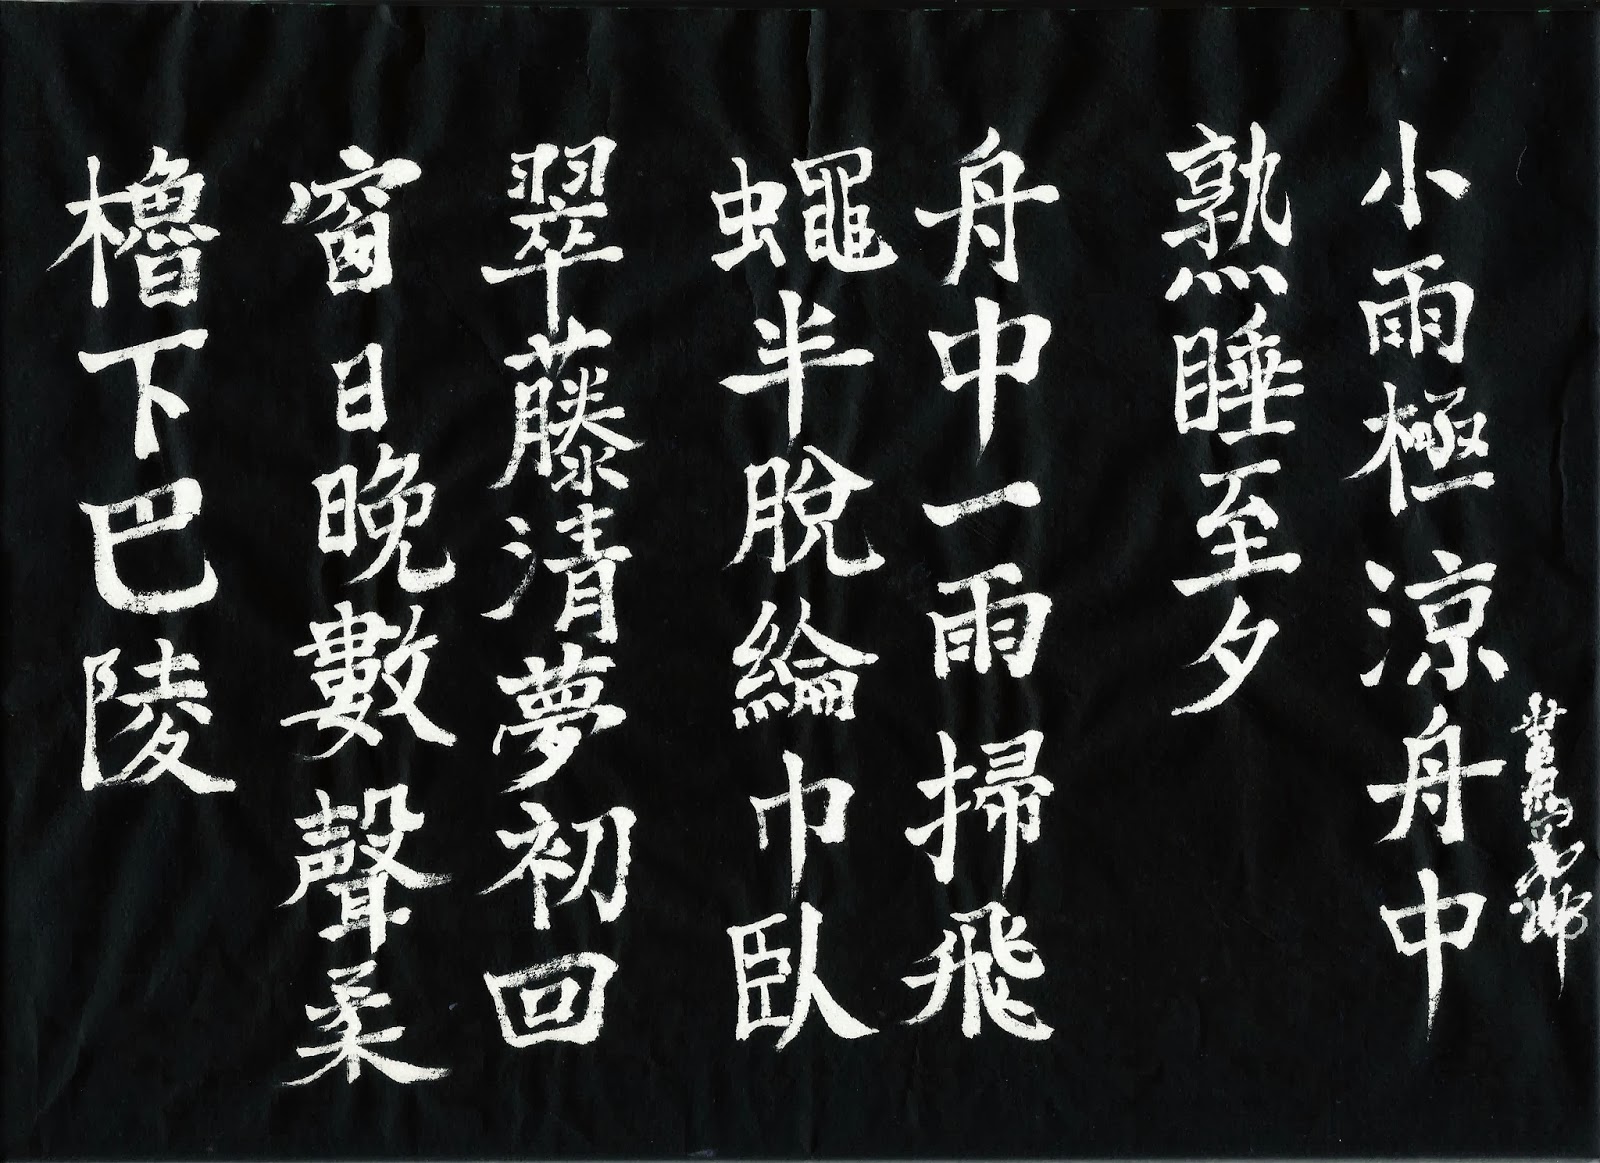 小雨極涼舟中
熟睡至夕
舟中一雨掃飛
蠅半脫綸巾臥
翠藤清夢初回
窗日晚數聲柔
櫓下巴陵